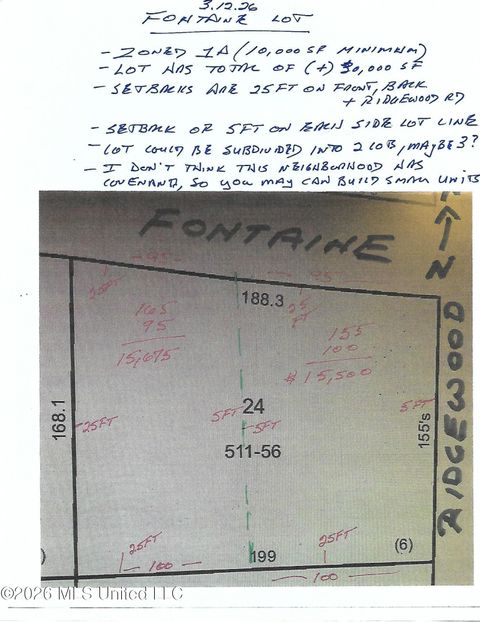 3.12.26
FONTAINE LOT
- ZONED 1A (10,000 SF MINIMUM)
- LOT HAS TOTAL OF (+) 30,000 SF
- SETBACKS ARE 25FT ON FRONT, BACK
+ RIDGEWOOD RD
- SETBACK OF 5FT ON EACH SIDE LOT LINE
- LOT COULD BE SUBDIVIDED INTO 2 LOTS, MAYBE 3?
- I DON'T THINK THIS NEIGHBORHOOD HAS
COVENANTS, SO YOU MAY CAN BUILD SMALL UNITS
FONTAINE
MAIN
RIDGEWOOD
95
95
25FT
188.3
25
FT
165
95
15,675
155
100
15,500
168.1
25FT
5FT
24
5FT
5FT
155's
511-56
25FT
25FT
(6)
)
100
199
100
©2026 MLS United LLC